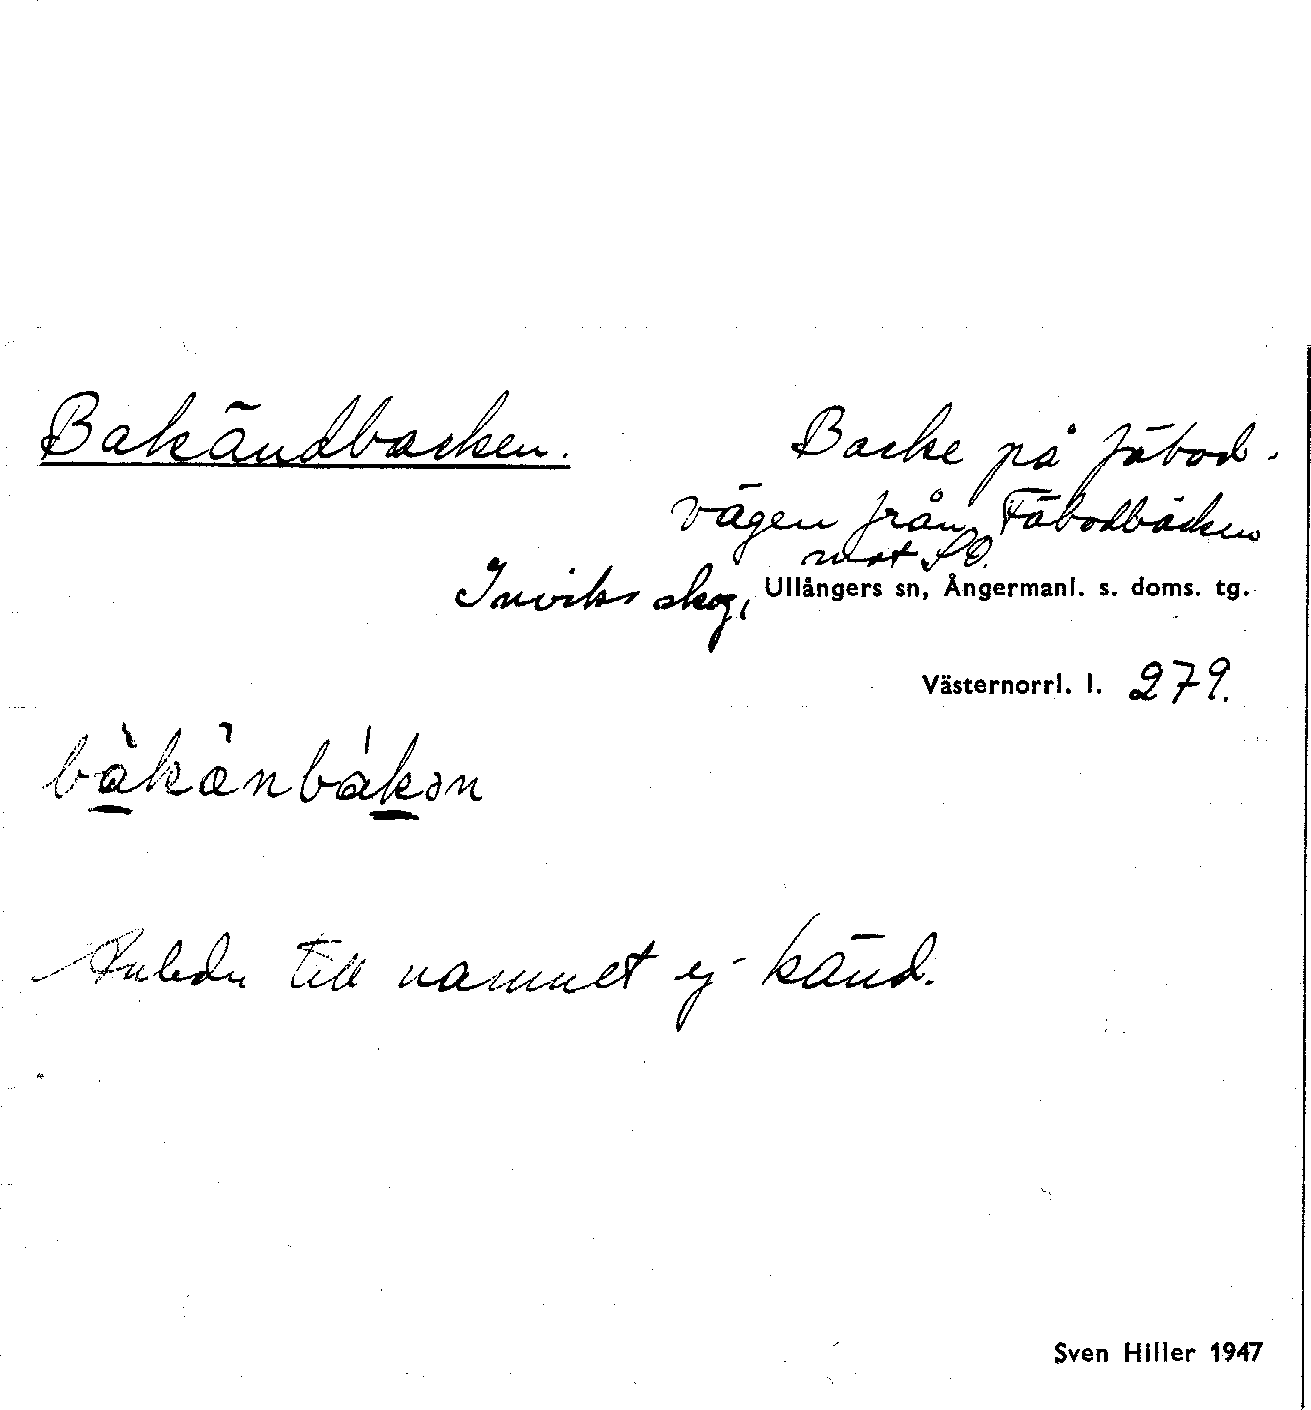 Bakändbacken.
Backe på fäbod-
vägen från Fäbodbäcken
mot SO.
Inviks skog, Ullångers sn, Ångermanl. s. doms. tg.
Västernorrl. l. 279.
bàkæ̀nbákən
Anledn till namnet ej känd.
Sven Hiller 1947